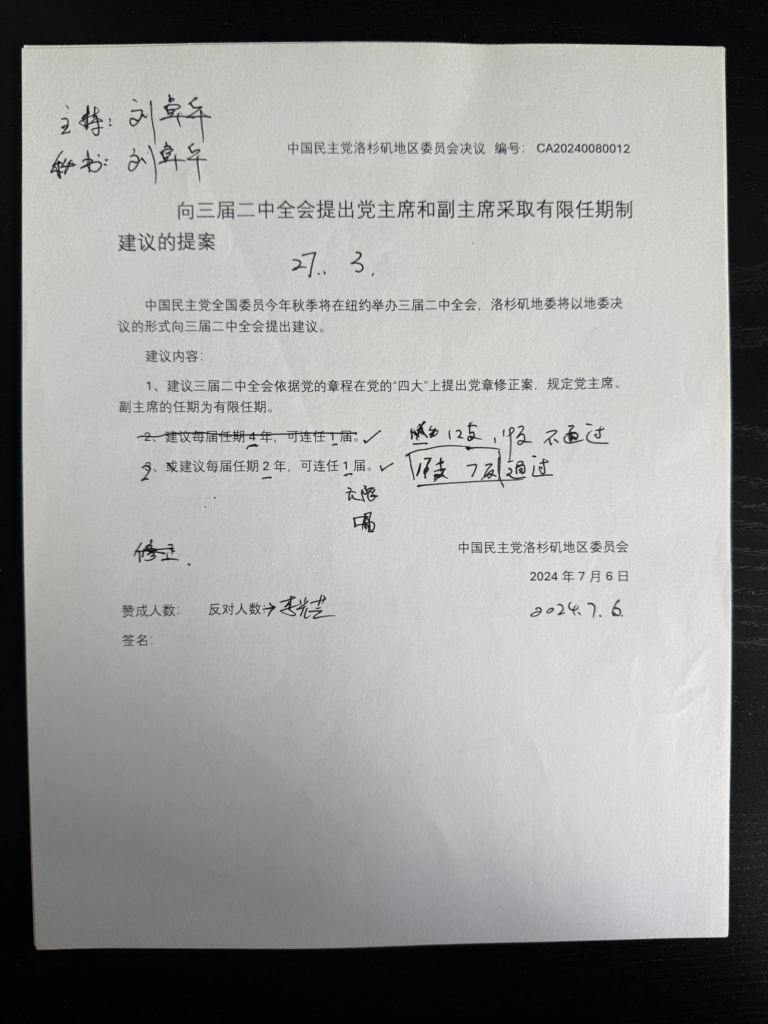 主持：刘卓华
秘书：刘卓华
中国民主党洛杉矶地区委员会决议 编号： CA20240080012
向三届二中全会提出党主席和副主席采取有限任期制
建议的提案
27.. 3.
中国民主党全国委员今年秋季将在纽约举办三届二中全会，洛杉矶地委将以地委决
议的形式向三届二中全会提出建议。
建议内容：
1、建议三届二中全会依据党的章程在党的“四大”上提出党章修正案，规定党主席、
副主席的任期为有限任期。
2、建议每届任期 4 年，可连任 1 届。✓ 12支，19反 不通过
3、或建议每届任期 2 年，可连任 1 届。✓ 7反 通过
2
修正、
中国民主党洛杉矶地区委员会
2024 年 7 月 6 日
赞成人数： 反对人数：→ 2024.7.6
签名：